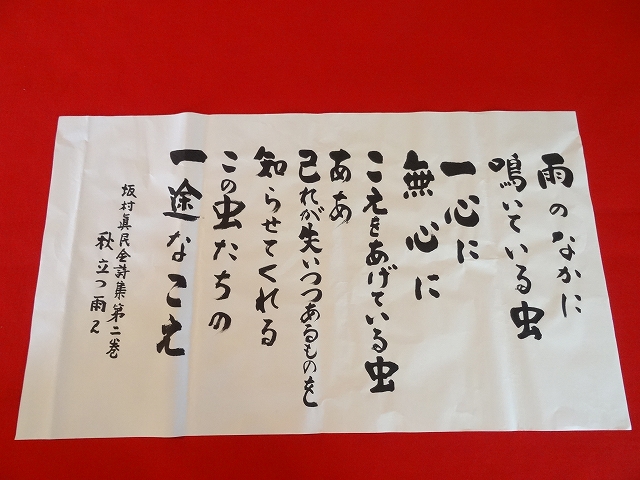 雨のなかに
鳴いている虫
一心に
無心に
こえをあげている虫
ああ
己れが失いつつあるものを
知らせてくれる
この虫たちの
一途なこえ
坂村眞民全詩集第二巻
秋立つ雨